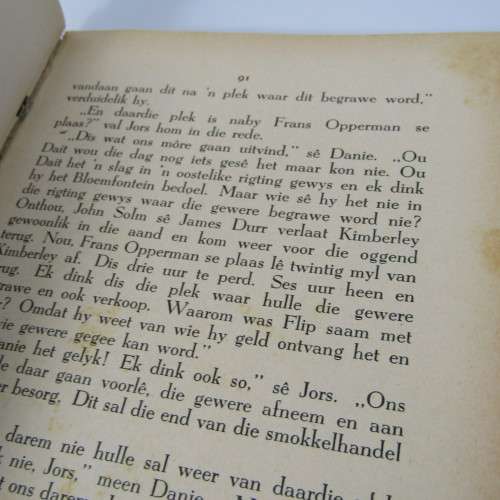 91
vandaan gaan dit na 'n plek waar dit begrawe word,"
verduidelik hy.
„En daardie plek is naby Frans Opperman se
plaas?" val Jors hom in die rede.
„Dis wat ons môre gaan uitvind," sê Danie. „Ou
Dait wou die dag nog iets gesê het maar kon nie. Ou
Dait het 'n slag in 'n oostelike rigting gewys en ek dink
hy het Bloemfontein bedoel. Maar wie sê hy het nie in
die rigting gewys waar die gewere begrawe word nie?
Onthou, John Solm sê James Durr verlaat Kimberley
gewoonlik in die aand en kom weer voor die oggend
terug. Nou, Frans Opperman se plaas lê twintig myl van
Kimberley af. Dis drie uur te perd. Ses uur heen en
rug. Ek dink dis die plek waar hulle die gewere
grawe en ook verkoop. Waarom was Flip saam met
? Omdat hy weet van wie hy geld ontvang het en
ie gewere gegee kan word."
anie het gelyk! Ek dink ook so," sê Jors. „Ons
le daar gaan voorlê, die gewere afneem en aan
er besorg. Dit sal die end van die smokkelhandel
darem nie hulle sal weer van daardie
k nie, Jors," meen Danie.
t ons darem